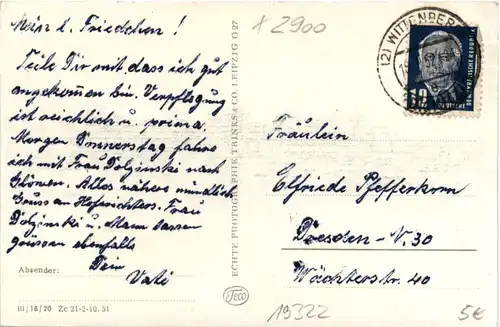 Mein l. Friedchen!
Teile Dir mit dass ich gut
angekommen bin. Verpflegung
ist reichlich u. prima.
Morgen Donnerstag fahre
ich mit Frau Dolzinski nach
Glöwen. Alles nähere mündlich
Gruss an Hefenrichters. Frau
Dolzinski u. Mann lassen
grüssen ebenfalls
Dein
Vati
Absender:
III/18/20 Zc 21-2-10.51
ECHTE PHOTOGRAPHIE TRINKS & CO. LEIPZIG O 27
Teco
x 2900
(2) WITTENBER
12
DEUTSCHE
DEMOKRATISCHE REPUBLIK
Fräulein
Elfriede Pfefferkorn
Dresden - N. 30
Wächterstr. 40
19322
5€